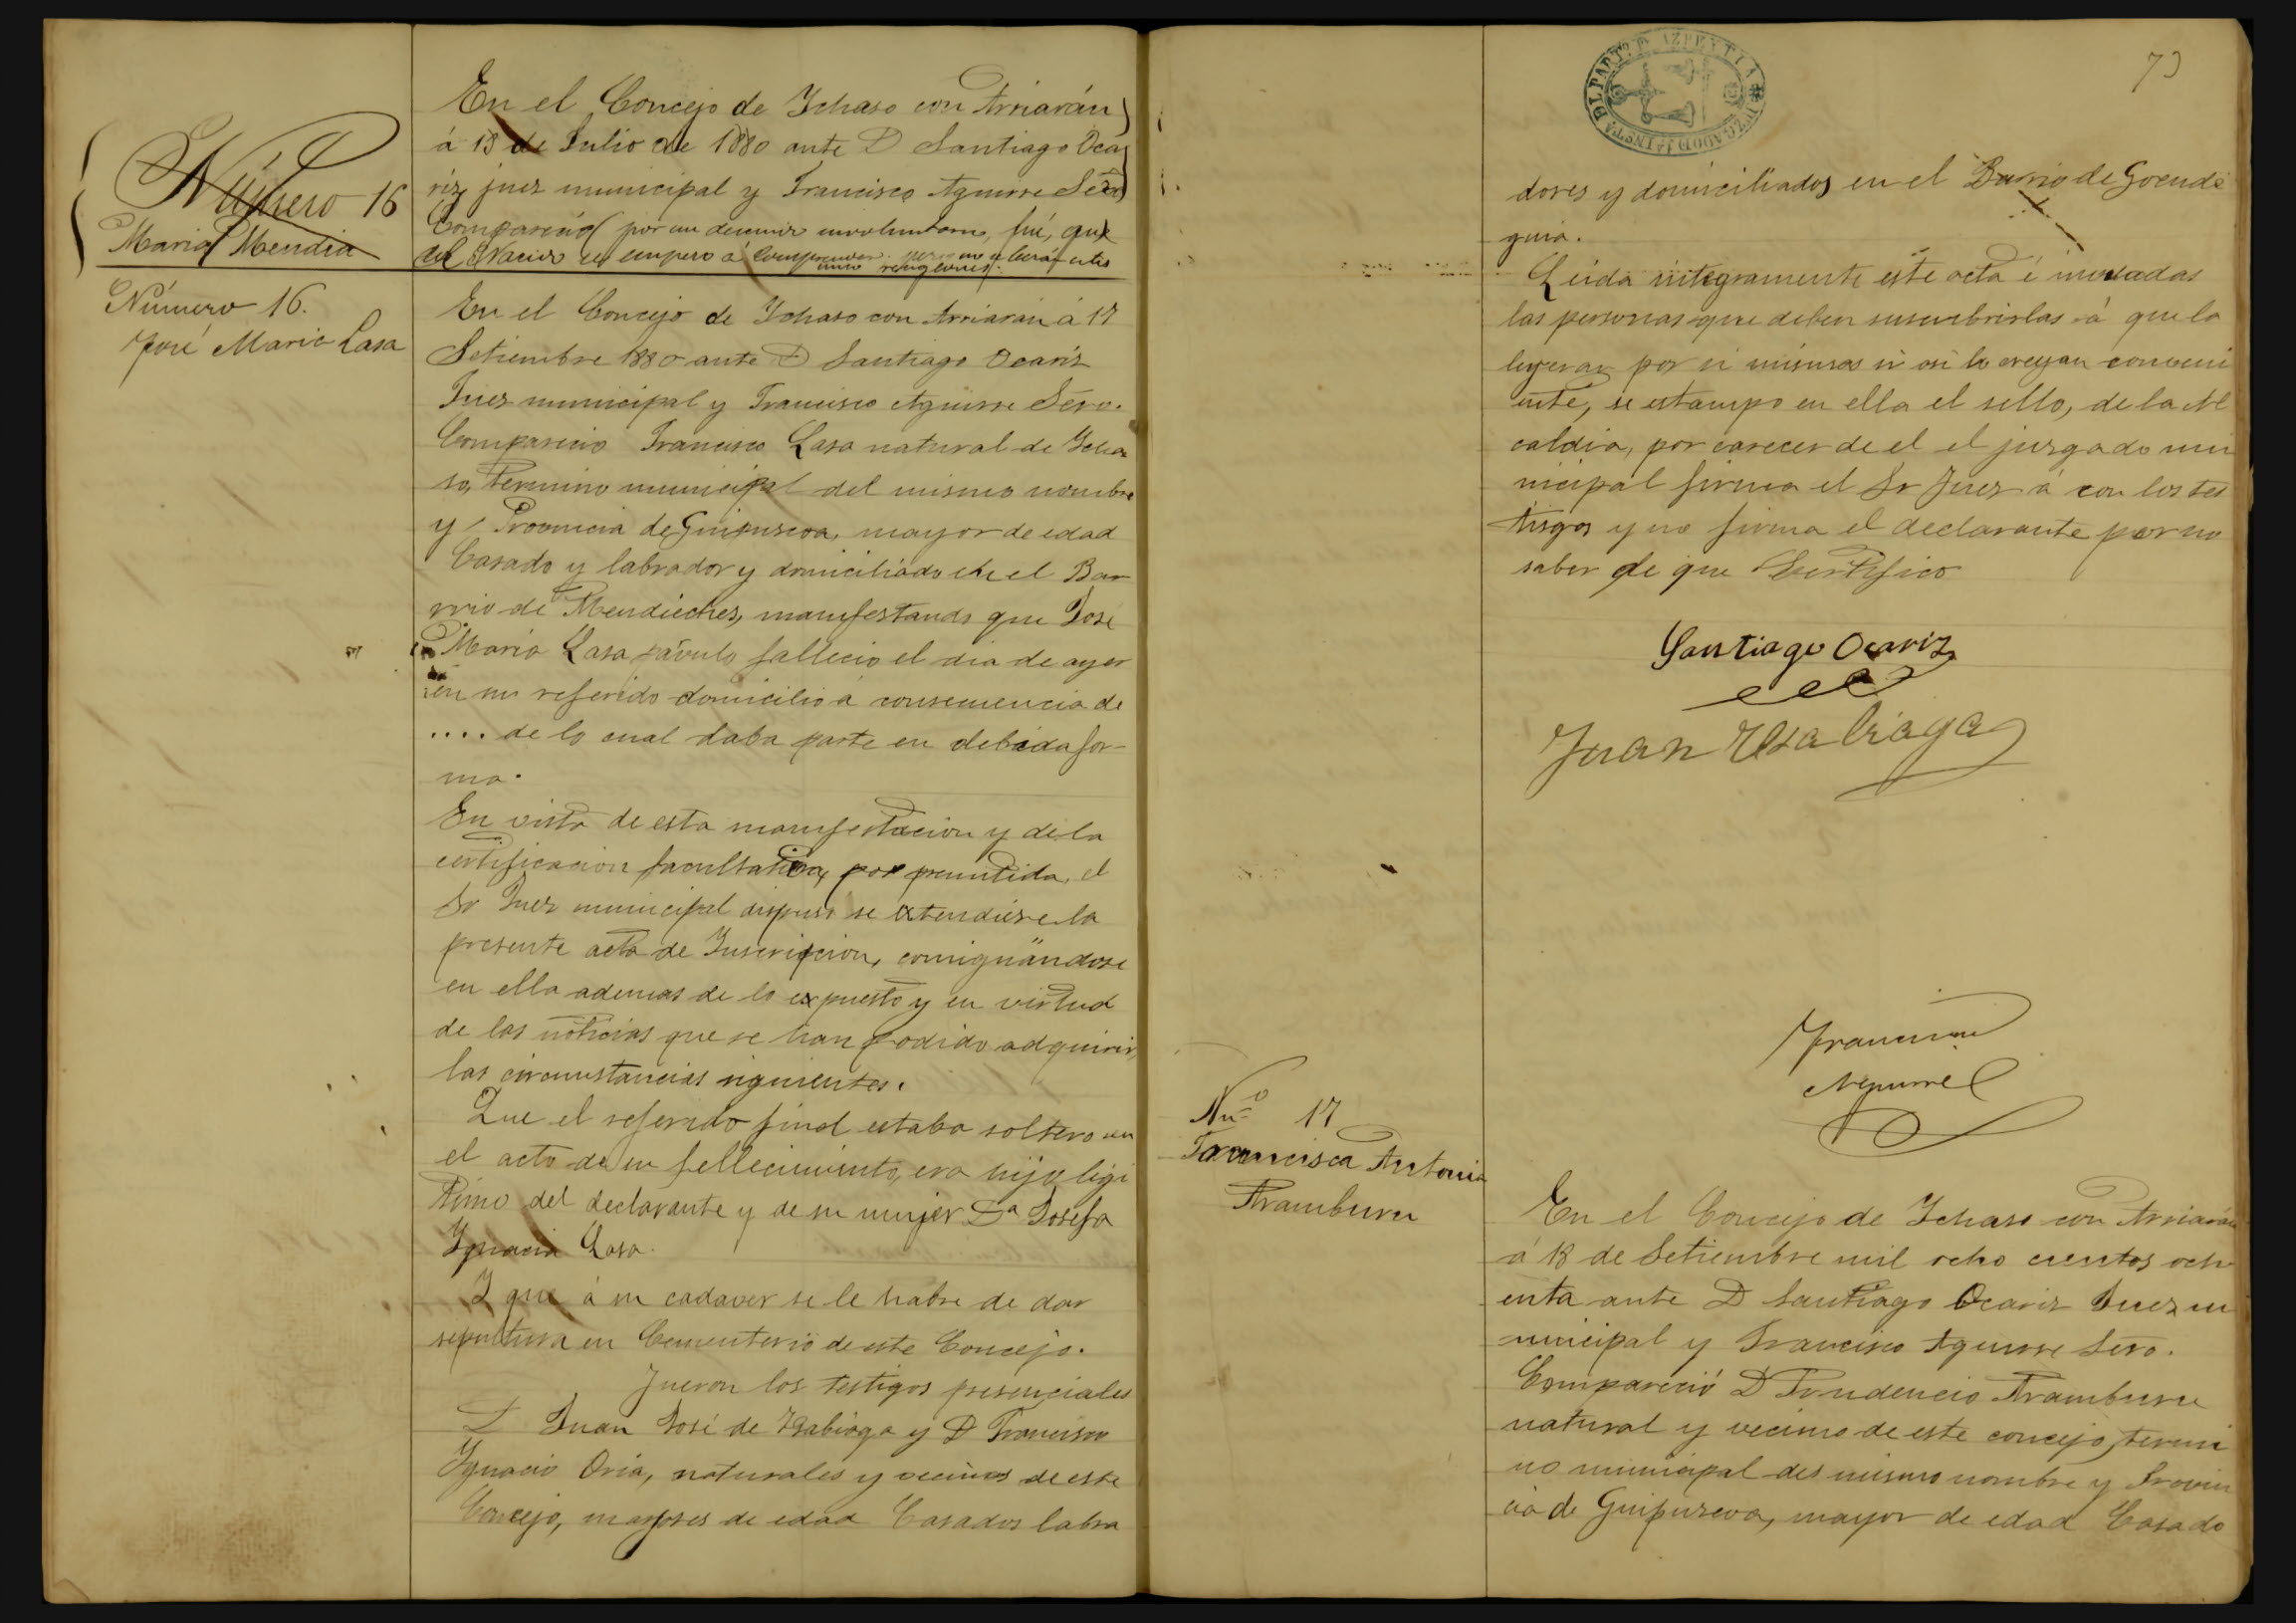 Número 16
Maria Mendia
En el Concejo de Ychaso con Arriarán
á 13 de Julio de 1880 ante D Santiago Oca
riz juez municipal y Francisco Aguirre
Compareció (por un involuntario, fué, que
se empezó á
Número 16.
José Maria Lasa
En el Concejo de Ychaso con Arriarán á 17
Setiembre 1880 ante D Santiago Ocariz
Juez municipal y Francisco Aguirre Scro.
Compareció Francisco Lasa natural de Ycha
so, termino municipal del mismo nombre
y Provincia de Guipuscoa, mayor de edad
Casado y labrador y domiciliado en el Bar
rrio de manifestando que José
Maria Lasa párvulo fallecio el dia de ayer
en su referido domicilio á consecuencia de
.... de lo cual daba parte en debida for-
ma.
En vista de esta manifestacion y de la
certificacion facultativa, el
Sr Juez municipal dispuso se extendiese la
presente acta de Inscripcion, consignándose
en ella ademas de lo expuesto y en virtud
de las noticias que se han podido adquirir,
las circunstancias siguientes.
Que el referido estaba soltero en
el acto de su fellecimiento, era hijo legi
timo del declarante y de su mujer Dª Josefa
Ygnacia Lasa.
Y que á su cadaver se le habre de dar
sepultura en Cementerio de este Concejo.
Fueron los testigos presenciales
D Juan José de y D Francisco
Ygnacio Oria, naturales y vecinos de este
Concejo, mayores de edad Casados labra
dores y domiciliados en el Barrio de Goende
guia.
Leida integramente este acta é
las personas que deben suscribirlas á que la
leyeran por si mismos si asi lo creyan conveni
ente, se estampo en ella el sello, de la Al
caldia, por carecer de el el juzgado mu
nicipal firma el Sr Juez á con los tes
tisgos y no firma el declarante por no
saber de que Certifico
Santiago Ocariz
Juan
Francisco
Aguirre
Nuº 17
Francisca Antonia
Aramburu
En el Concejo de Ychaso con Arriarán
á 18 de Setiembre mil ocho cientos och
enta ante D Santiago Ocariz Juez m
unicipal y Francisco Aguirre Scro.
Compareció D Prudencio Aramburu
natural y vecino de este concejo, termi
no municipal del mismo nombre y Provin
cia de Guipuscoa, mayor de edad Casado